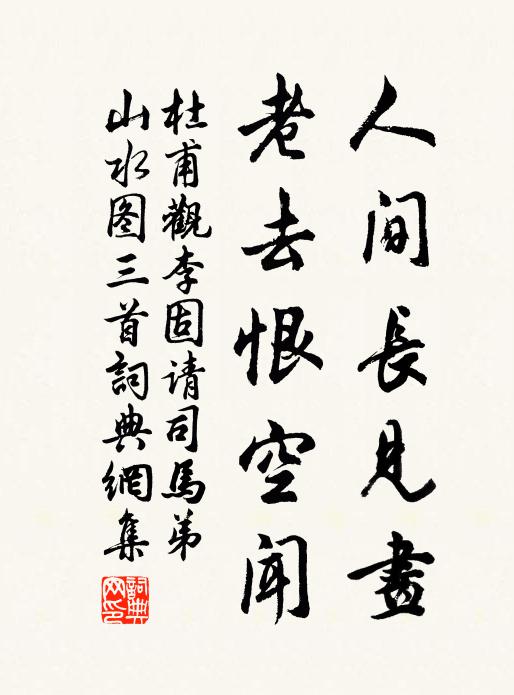 人间長見畫
老去恨空聞
杜甫觀李固请司馬弟
山水图三首詞典網集
詞典
网印